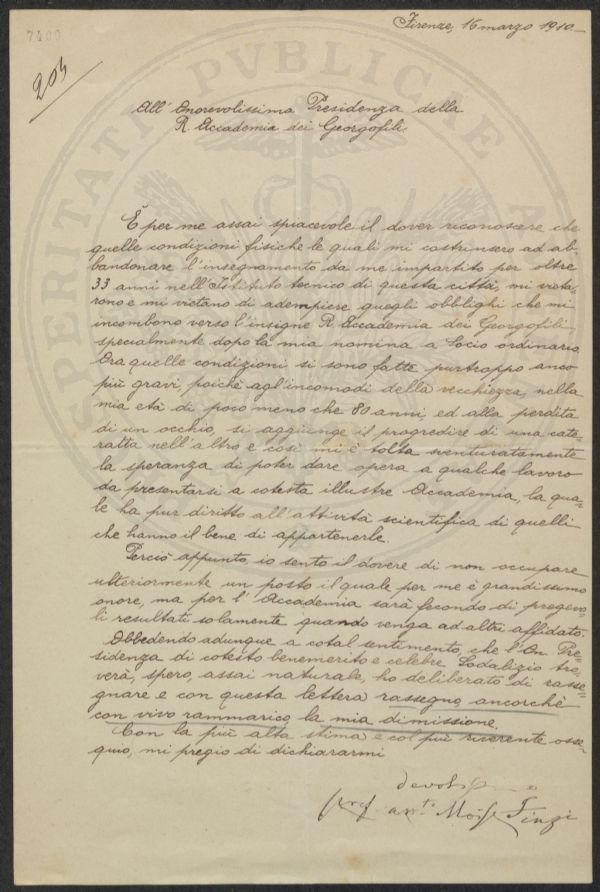 7400
203
Firenze, 16 marzo 1910.
PERITATI PVBLICAE
All' Onorevolissima Presidenza della
R. Accademia dei Georgofili
È per me assai spiacevole il dover riconoscere che
quelle condizioni fisiche le quali mi costrinsero ad ab=
bandonare l'insegnamento da me impartito per oltre
33 anni nell'Istituto tecnico di questa città, mi vieta=
rono e mi vietano di adempiere quegli obblighi che mi
incombono verso l'insigne R. Accademia dei Georgofili,
specialmente dopo la mia nomina a Socio ordinario.
Ora quelle condizioni si sono fatte purtroppo anco
più gravi, poichè agl'incomodi della vecchiezza, nella
mia età di poco meno che 80 anni ed alla perdita
di un occhio, si aggiunge il progredire di una cate=
ratta nell'altro e così mi è tolta sventuratamente
la speranza di poter dare opera a qualche lavoro
da presentarsi a cotesta illustre Accademia, la qua=
le ha pur diritto all'attività scientifica di quelli
che hanno il bene di appartenerle.
Perciò appunto, io sento il dovere di non occupare
ulteriormente un posto il quale per me è grandissimo
onore, ma per l'Accademia sarà fecondo di pregevo=
li resultati solamente quando venga ad altri affidato.
Obbedendo adunque a cotal sentimento, che l'On. Pre=
sidenza di cotesto benemerito e celebre Sodalizio tro=
verà, spero, assai naturale, ho deliberato di rasse=
gnare e con questa lettera rassegno, ancorchè
con vivo rammarico, la mia dimissione.
Con la più alta stima e col più riverente osse=
quio, mi pregio di dichiararmi
prof. Moisè Finzi